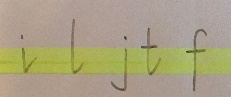 i l j t f